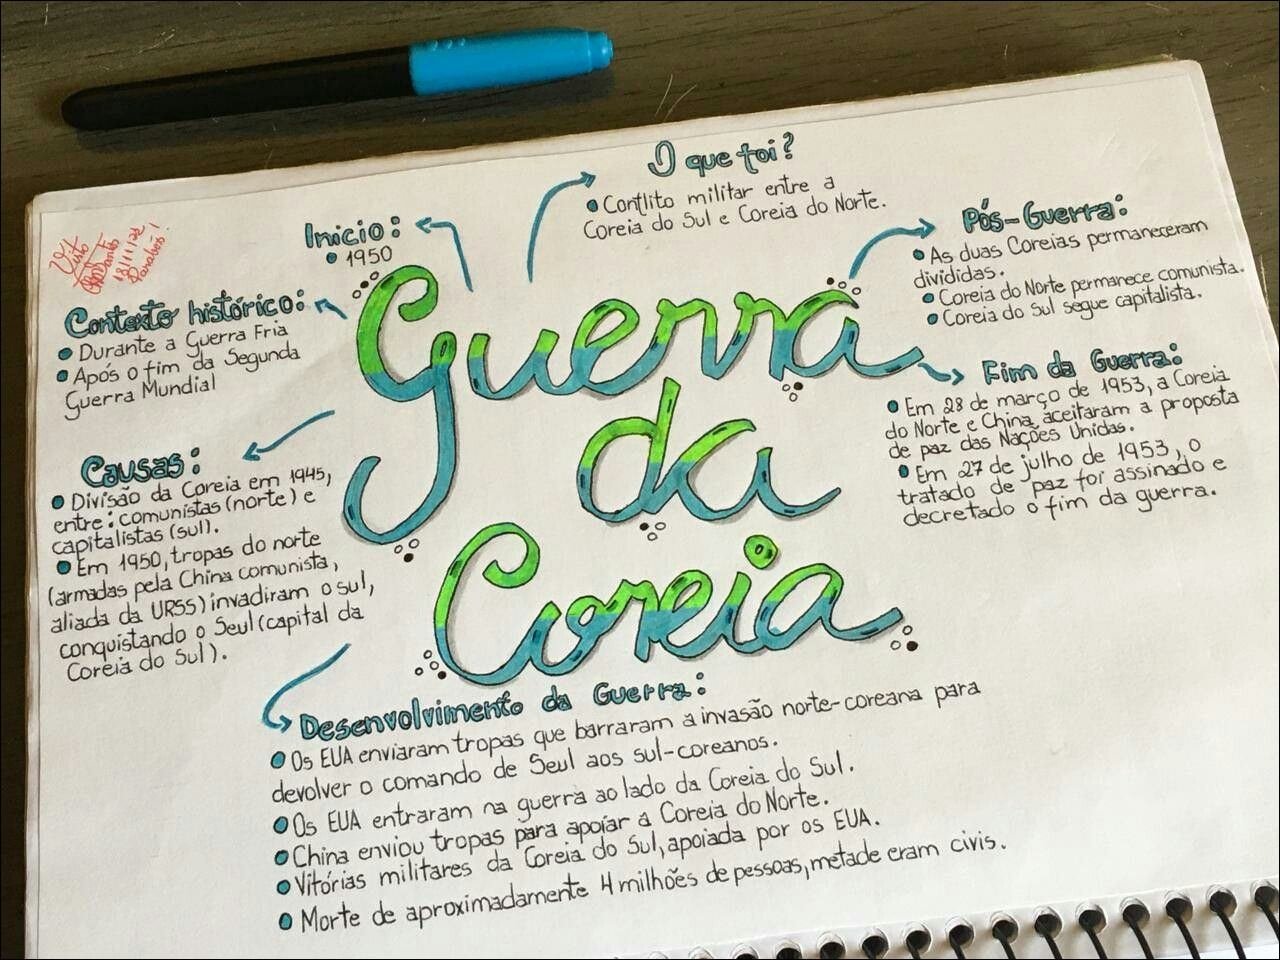 O que foi?
• Conflito militar entre a
Coreia do Sul e Coreia do Norte.
Início:
• 1950
Visto
18/11/22
Parabéns!
Contexto histórico:
• Durante a Guerra Fria
• Após o fim da Segunda
Guerra Mundial
Causas:
• Divisão da Coreia em 1945,
entre: comunistas (norte) e
capitalistas (sul).
• Em 1950, tropas do norte
(armadas pela China comunista,
aliada da URSS) invadiram o sul,
conquistando o Seul (capital da
Coreia do Sul).
Guerra
da
Coreia
Pós-Guerra:
• As duas Coreias permaneceram
divididas.
• Coreia do Norte permanece comunista.
• Coreia do Sul segue capitalista.
Fim da Guerra:
• Em 28 de março de 1953, a Coreia
do Norte e China, aceitaram a proposta
de paz das Nações Unidas.
• Em 27 de julho de 1953, o
tratado de paz foi assinado e
decretado o fim da guerra.
Desenvolvimento da Guerra:
• Os EUA enviaram tropas que barraram a invasão norte-coreana para
devolver o comando de Seul aos sul-coreanos.
• Os EUA entraram na guerra ao lado da Coreia do Sul.
• China enviou tropas para apoiar a Coreia do Norte.
• Vitórias militares da Coreia do Sul, apoiada por os EUA.
• Morte de aproximadamente 4 milhões de pessoas, metade eram civis.